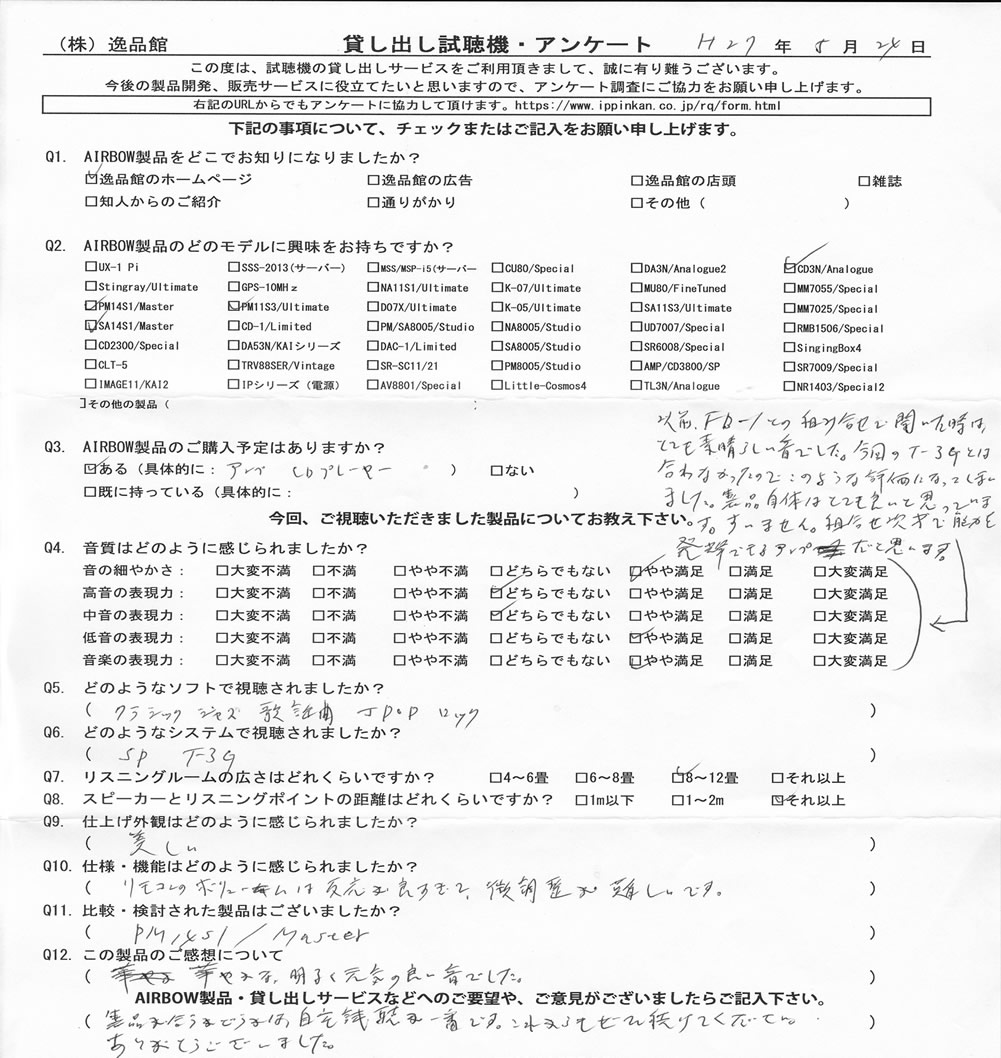 (株)逸品館 貸し出し試聴機・アンケート H27 年 5 月 24 日
この度は、試聴機の貸し出しサービスをご利用頂きまして、誠に有り難うございます。
今後の製品開発、販売サービスに役立てたいと思いますので、アンケート調査にご協力をお願い申し上げます。
右記のURLからでもアンケートに協力して頂けます。https://www.ippinkan.co.jp/rq/form.html
下記の事項について、チェックまたはご記入をお願い申し上げます。
Q1. AIRBOW製品をどこでお知りになりましたか?
☑逸品館のホームページ □逸品館の広告 □逸品館の店頭 □雑誌
□知人からのご紹介 □通りがかり □その他( )
Q2. AIRBOW製品のどのモデルに興味をお持ちですか?
□UX-1 Pi □SSS-2013(サーバー) □MSS/MSP-i5(サーバー □CU80/Special □DA3N/Analogue2 ☑CD3N/Analogue
□Stingray/Ultimate □GPS-10MHz □NA11S1/Ultimate □K-07/Ultimate □MU80/FineTuned □MM7055/Special
☑PM14S1/Master ☑PM11S3/Ultimate □D07X/Ultimate □K-05/Ultimate □SA11S3/Ultimate □MM7025/Special
☑SA14S1/Master □CD-1/Limited □PM/SA8005/Studio □NA8005/Studio □UD7007/Special □RMB1506/Special
□CD2300/Special □DA53N/KAIシリーズ □DAC-1/Limited □SA8005/Studio □SR6008/Special □SingingBox4
□CLT-5 □TRV88SER/Vintage □SR-SC11/21 □PM8005/Studio □AMP/CD3800/SP □SR7009/Special
□IMAGE11/KAI2 □IPシリーズ(電源) □AV8801/Special □Little-Cosmos4 □TL3N/Analogue □NR1403/Special2
]その他の製品( :
以前、FB-1との組み合せで聞いた時は、
とても素晴らしい音でした。今回のT-3Gとは
合わなかったのでこのような評価になってしまい
ました。製品自体はとても良いと思っていま
す。すいません。組合せ次才で能力を
発揮できるアンプだと思います。
Q3. AIRBOW製品のご購入予定はありますか?
☑ある(具体的に: アンプ CDプレーヤー ) □ない
□既に持っている(具体的に: )
今回、ご視聴いただきました製品についてお教え下さい。
Q4. 音質はどのように感じられましたか?
音の細やかさ: □大変不満 □不満 □やや不満 □どちらでもない ☑やや満足 □満足 □大変満足
高音の表現力: □大変不満 □不満 □やや不満 ☑どちらでもない □やや満足 □満足 □大変満足
中音の表現力: □大変不満 □不満 □やや不満 ☑どちらでもない □やや満足 □満足 □大変満足
低音の表現力: □大変不満 □不満 □やや不満 □どちらでもない ☑やや満足 □満足 □大変満足
音楽の表現力: □大変不満 □不満 □やや不満 □どちらでもない ☑やや満足 □満足 □大変満足
Q5. どのようなソフトで視聴されましたか?
( クラシック ジャズ 歌謡曲 JPOP ロック )
Q6. どのようなシステムで視聴されましたか?
( SP T-3G )
Q7. リスニングルームの広さはどれくらいですか? □4~6畳 □6~8畳 ☑8~12畳 □それ以上
Q8. スピーカーとリスニングポイントの距離はどれくらいですか? □1m以下 □1~2m ☑それ以上
Q9. 仕上げ外観はどのように感じられましたか?
( 美しい )
Q10. 仕様・機能はどのように感じられましたか?
( リモコンのボリュームは反応が良すぎて、微調整が難しいです。 )
Q11. 比較・検討された製品はございましたか?
( PM14S1/Master )
Q12. この製品のご感想について
( 華やかな、明るく元気の良い音でした。 )
AIRBOW製品・貸し出しサービスなどへのご要望や、ご意見がございましたらご記入下さい。
( 製品が合うかどうかは、自宅試聴が一番です。これからもぜひ続けてください。 )
ありがとうございました。